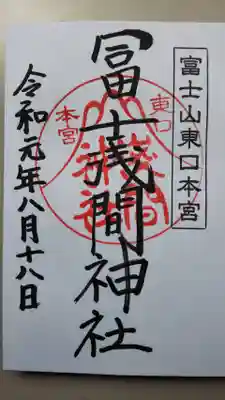 富士山東口本宮
東口
本宮
冨士浅間神社
令和元年八月十八日